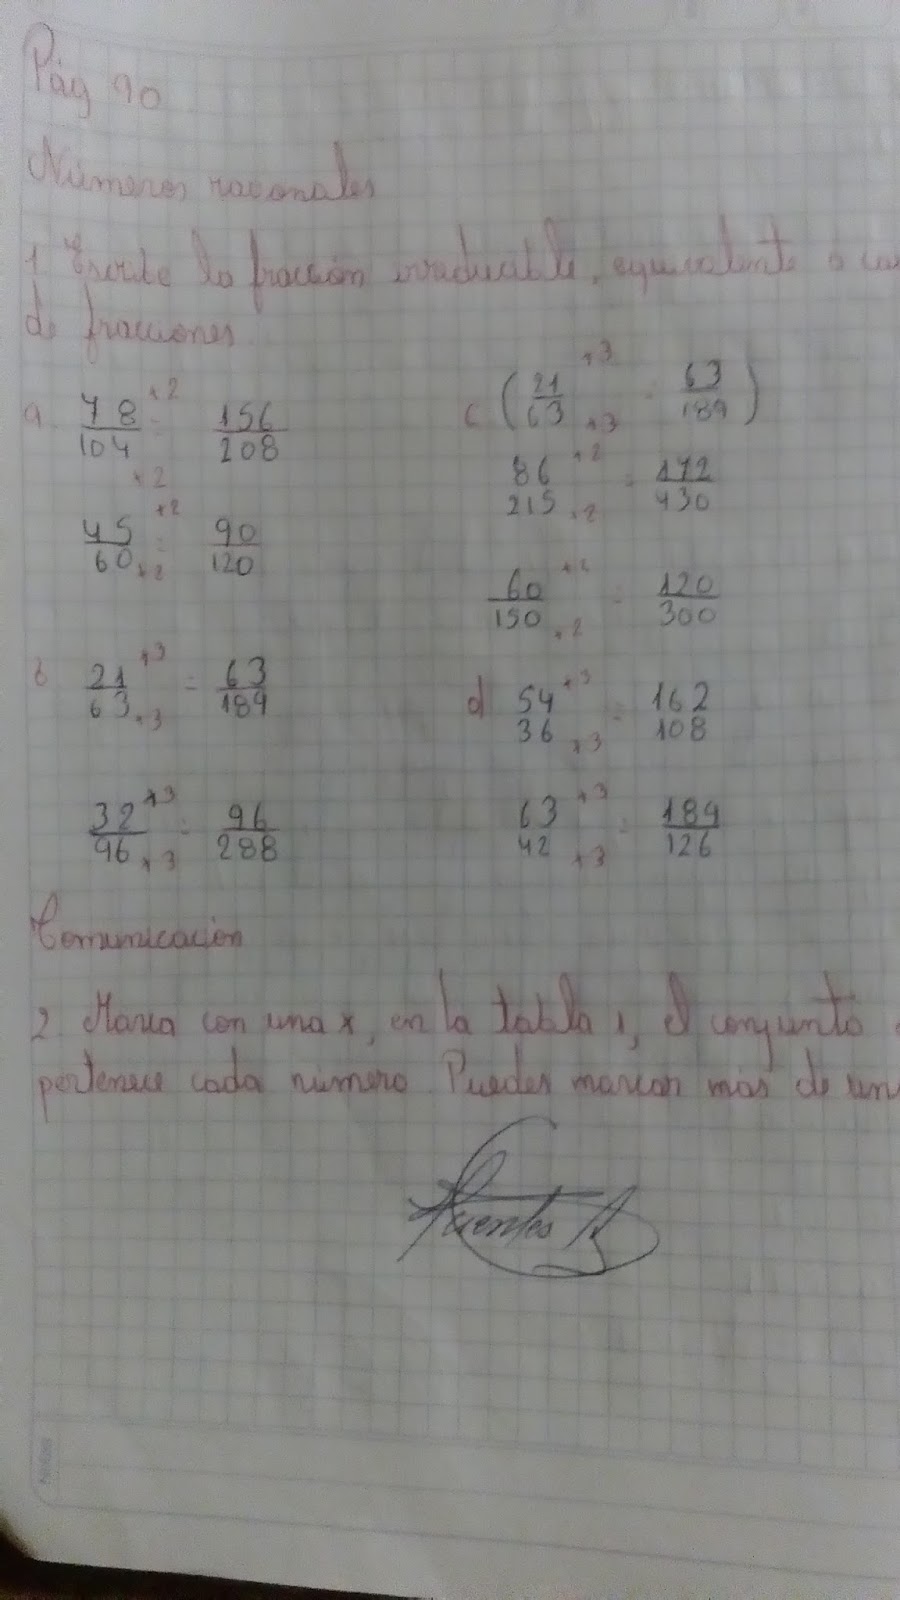 Pág 90
Números racionales
1. Escribe la fracción irreducible, equivalente a ca
de fracciones
a. 78/104 ×2 ×2 = 156/208
45/60 ×2 ×2 = 90/120
b 21/63 ×3 ×3 = 63/189
32/96 ×3 ×3 = 96/288
c (21/63 ×3 ×3 = 63/189)
86/215 ×2 ×2 = 172/430
60/150 ×2 ×2 = 120/300
d 54/36 ×3 ×3 = 162/108
63/42 ×3 ×3 = 189/126
Comunicación
2. Marca con una x, en la tabla 1, el conjunto
pertenece cada número. Puedes marcar más de un
Fuentes